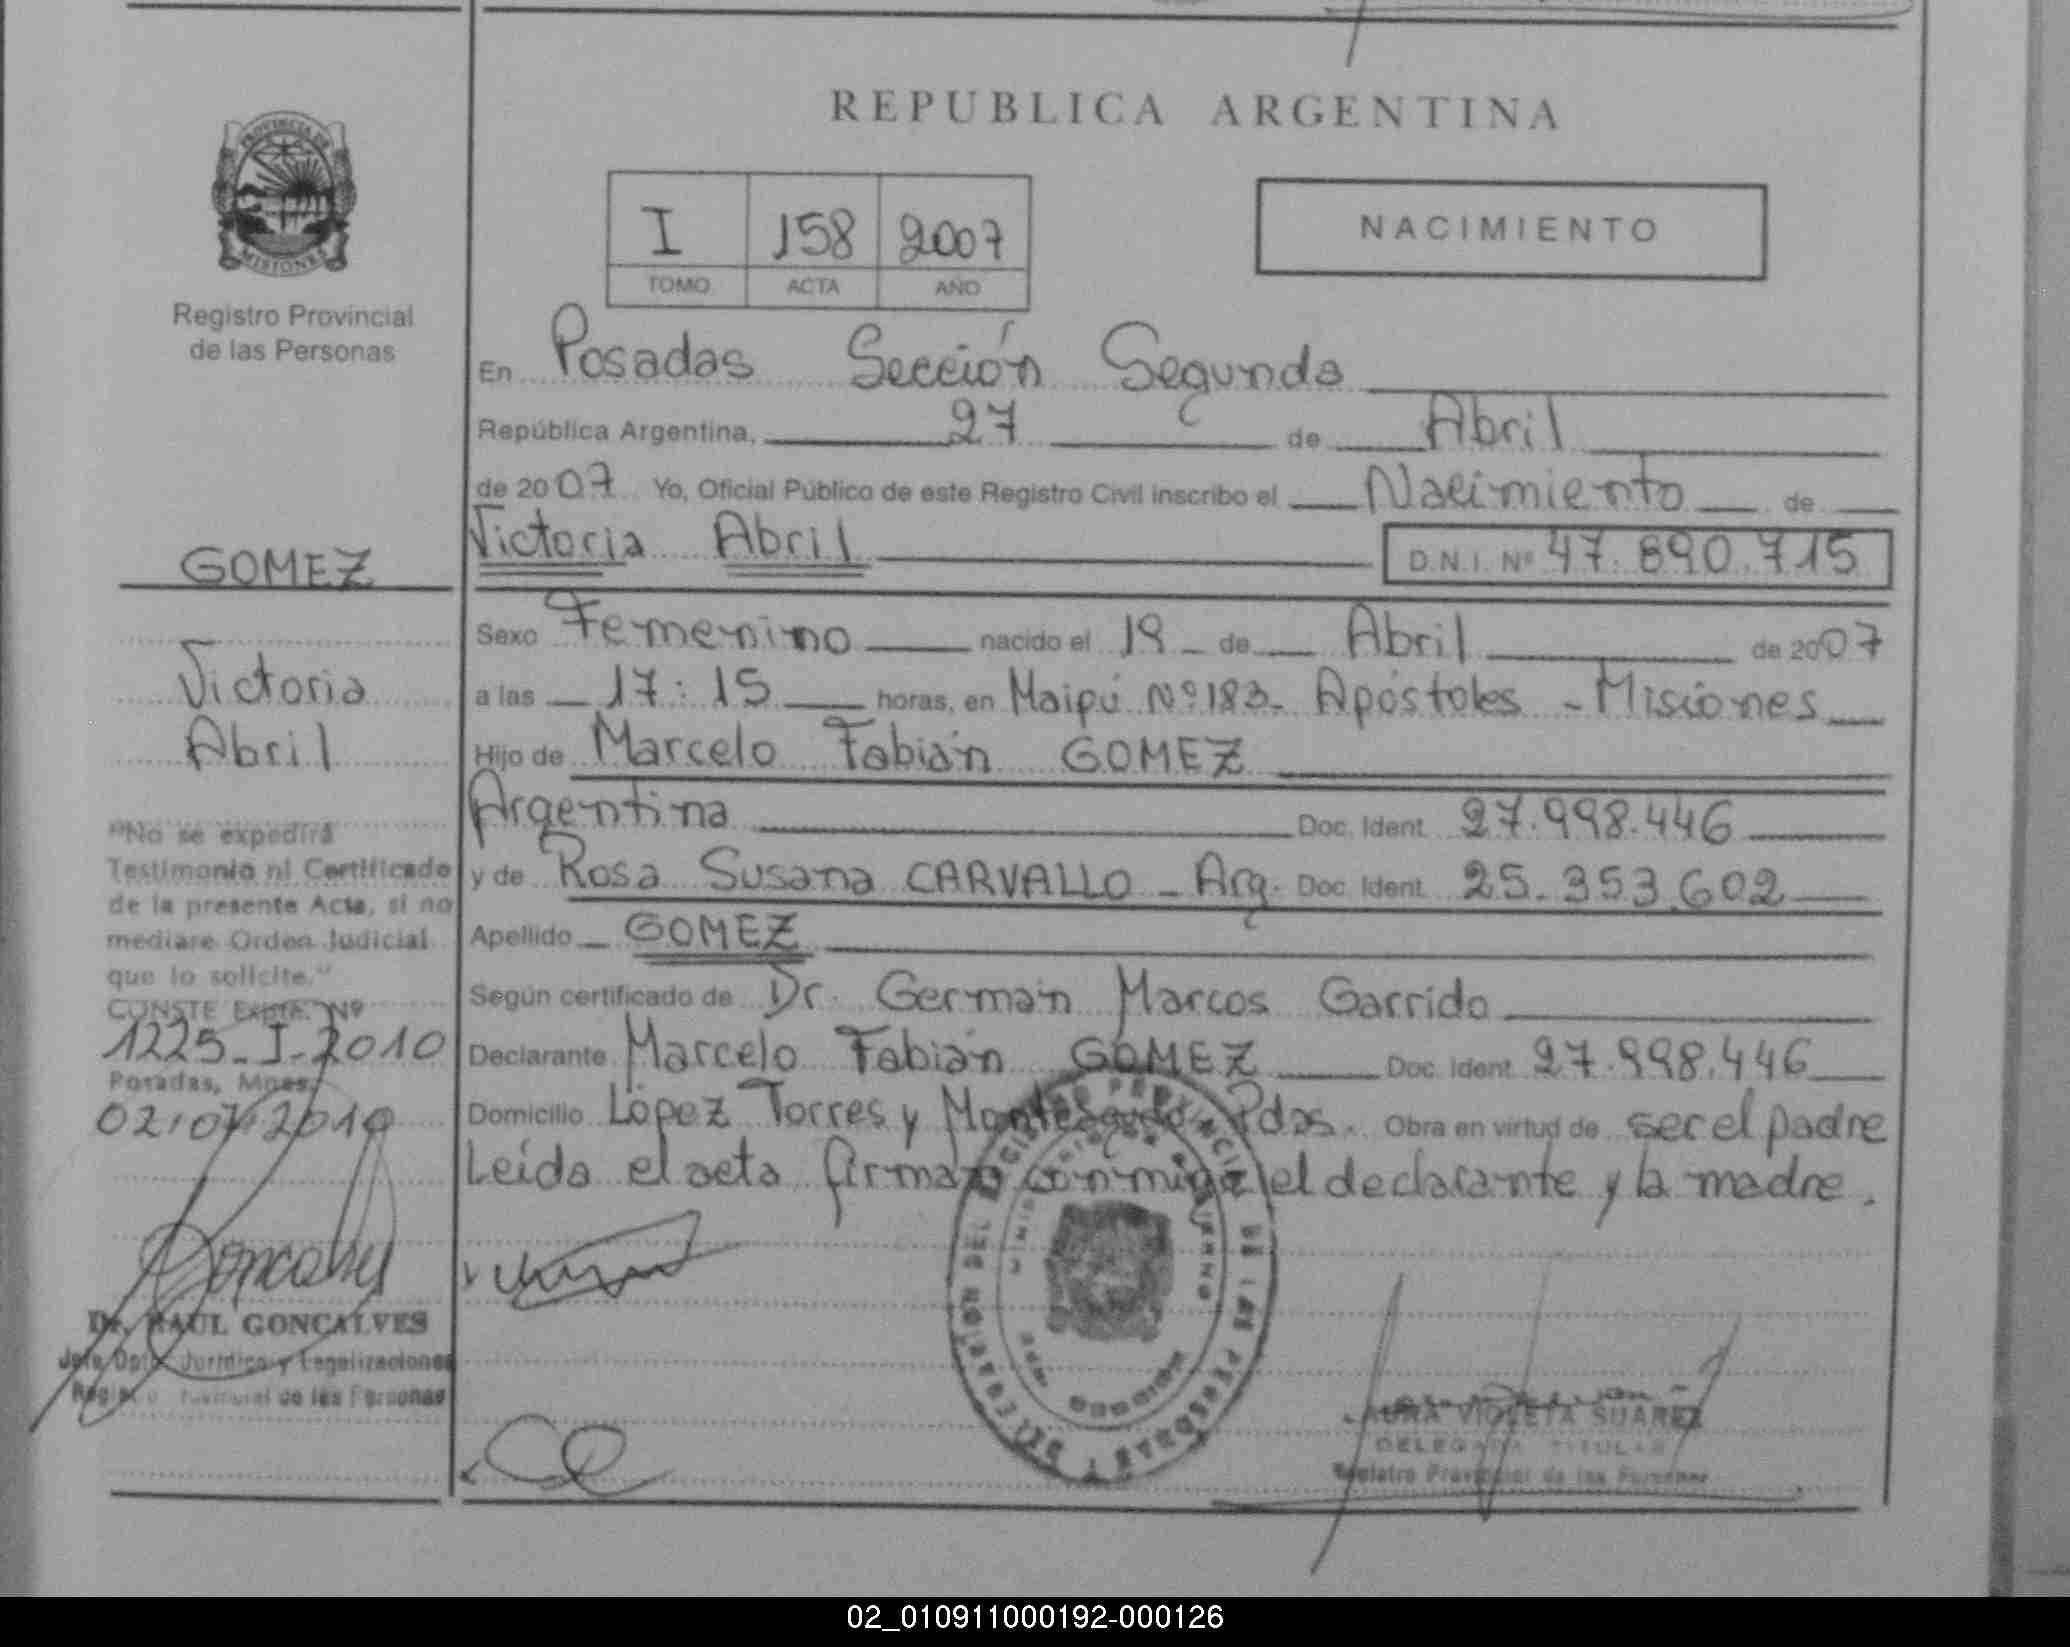 REPUBLICA ARGENTINA
PROVINCIA DE
MISIONES
Registro Provincial
de las Personas
I 158 2007
TOMO ACTA AÑO
NACIMIENTO
En Posadas Sección Segunda
República Argentina, 27 de Abril
de 2007 Yo, Oficial Público de este Registro Civil inscribo el Nacimiento de
Victoria Abril D.N.I. Nº 47.890.715
Sexo Femenino nacido el 19 de Abril de 2007
a las 17:15 horas, en Maipú Nº 183- Apóstoles - Misiones
Hijo de Marcelo Fabián GOMEZ
Argentina Doc. Ident. 27.998.446
y de Rosa Susana CARVALLO - Arg. Doc. Ident. 25.353.602
Apellido GOMEZ
Según certificado de Dr. Germán Marcos Garrido
Declarante Marcelo Fabián GOMEZ Doc. Ident. 27.998.446
Domicilio López Torres y Monteagudo Pdas. Obra en virtud de ser el padre
Leída el acta firman conmigo el declarante y la madre.
GOMEZ
Victoria
Abril
"No se expedirá
Testimonio ni Certificado
de la presente Acta, si no
mediare Orden Judicial
que lo solicite."
CONSTE Expte. Nº
1225-I-2010
Posadas, Mnes.
02.07.2010
Dr. RAUL GONCALVES
Jefe Dpto. Jurídico y Legalizaciones
Registro Provincial de las Personas
LAURA VIOLETA SUAREZ
DELEGADA TITULAR
Registro Provincial de las Personas
02_010911000192-000126